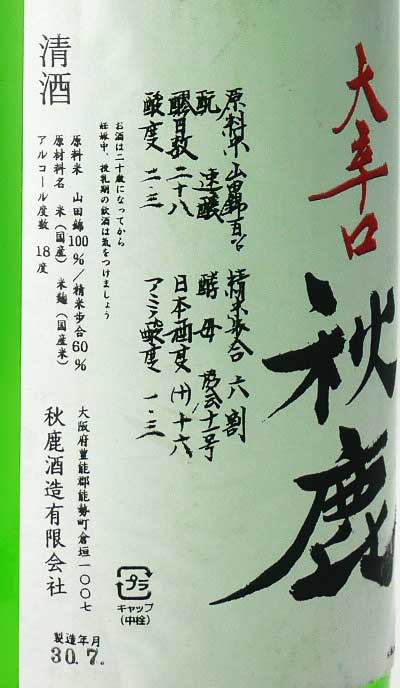 大辛口
秋鹿
原料米 山田錦百%
精米歩合 六割
酛 速醸
酵母 協会十一号
醪日数 二十八
日本酒度 (+)十六
酸度 二.三
アミノ酸度 一.三
お酒は二十歳になってから
妊娠中、授乳期の飲酒は気をつけましょう
原料米 山田錦100%/精米歩合60%
原材料名 米(国産) 米麹(国産米)
アルコール度数 18度
清酒
大阪府豊能郡能勢町倉垣一〇〇七
秋鹿酒造有限会社
プラ
キャップ
(中栓)
製造年月
30.7.